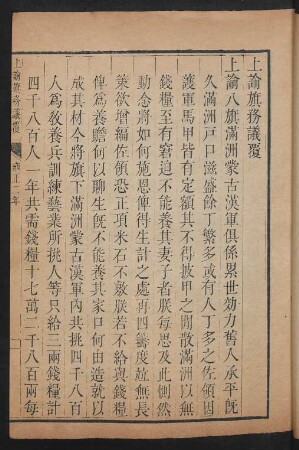 上諭旗務議覆
上諭八旗滿洲蒙古漢軍俱係累世効力舊人承平既
久滿洲戶口滋盛餘丁繁多或有人丁多之佐領因
護軍馬甲皆有定額其不得披甲之閒散滿洲以無
錢糧至有窘迫不能養其妻子者朕每思及此惻然
動念將如何施恩俾得生計之處再四籌度並無長
策欲增編佐領恐正項米石不敷朕若不給與錢糧
俾爲養贍何以聊生既不能養其家口何由造就以
成其材今將旗下滿洲蒙古漢軍內共挑四千八百
人爲教養兵訓練藝業所挑人等只給三兩錢糧計
四千八百人一年共需錢糧十七萬二千八百兩每
上諭旗務議覆